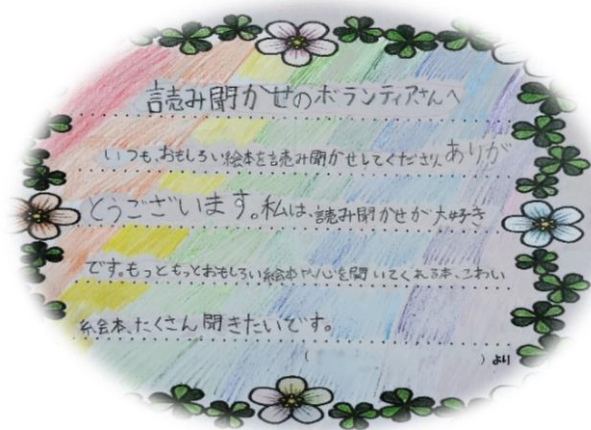 読み聞かせのボランティアさんへ
いつも、おもしろい絵本を読み聞かせしてくださり、ありが
とうございます。私は、読み聞かせが大好き
です。もっともっとおもしろい絵本や、心を開いてくれる本、こわい
絵本、たくさん聞きたいです。
( ) より